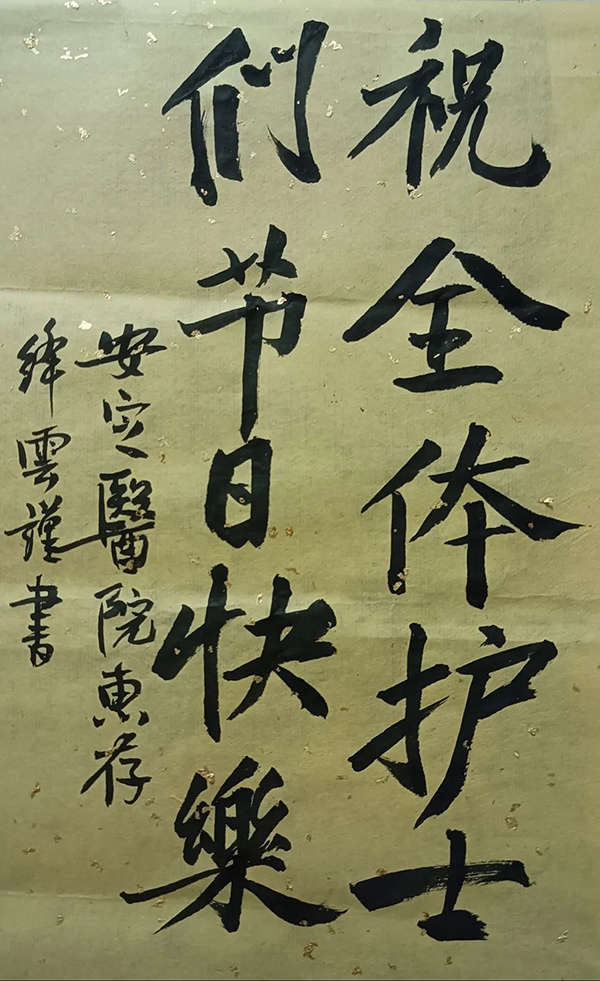 祝全体护士
们节日快樂
安定醫院惠存
绛雲谨書